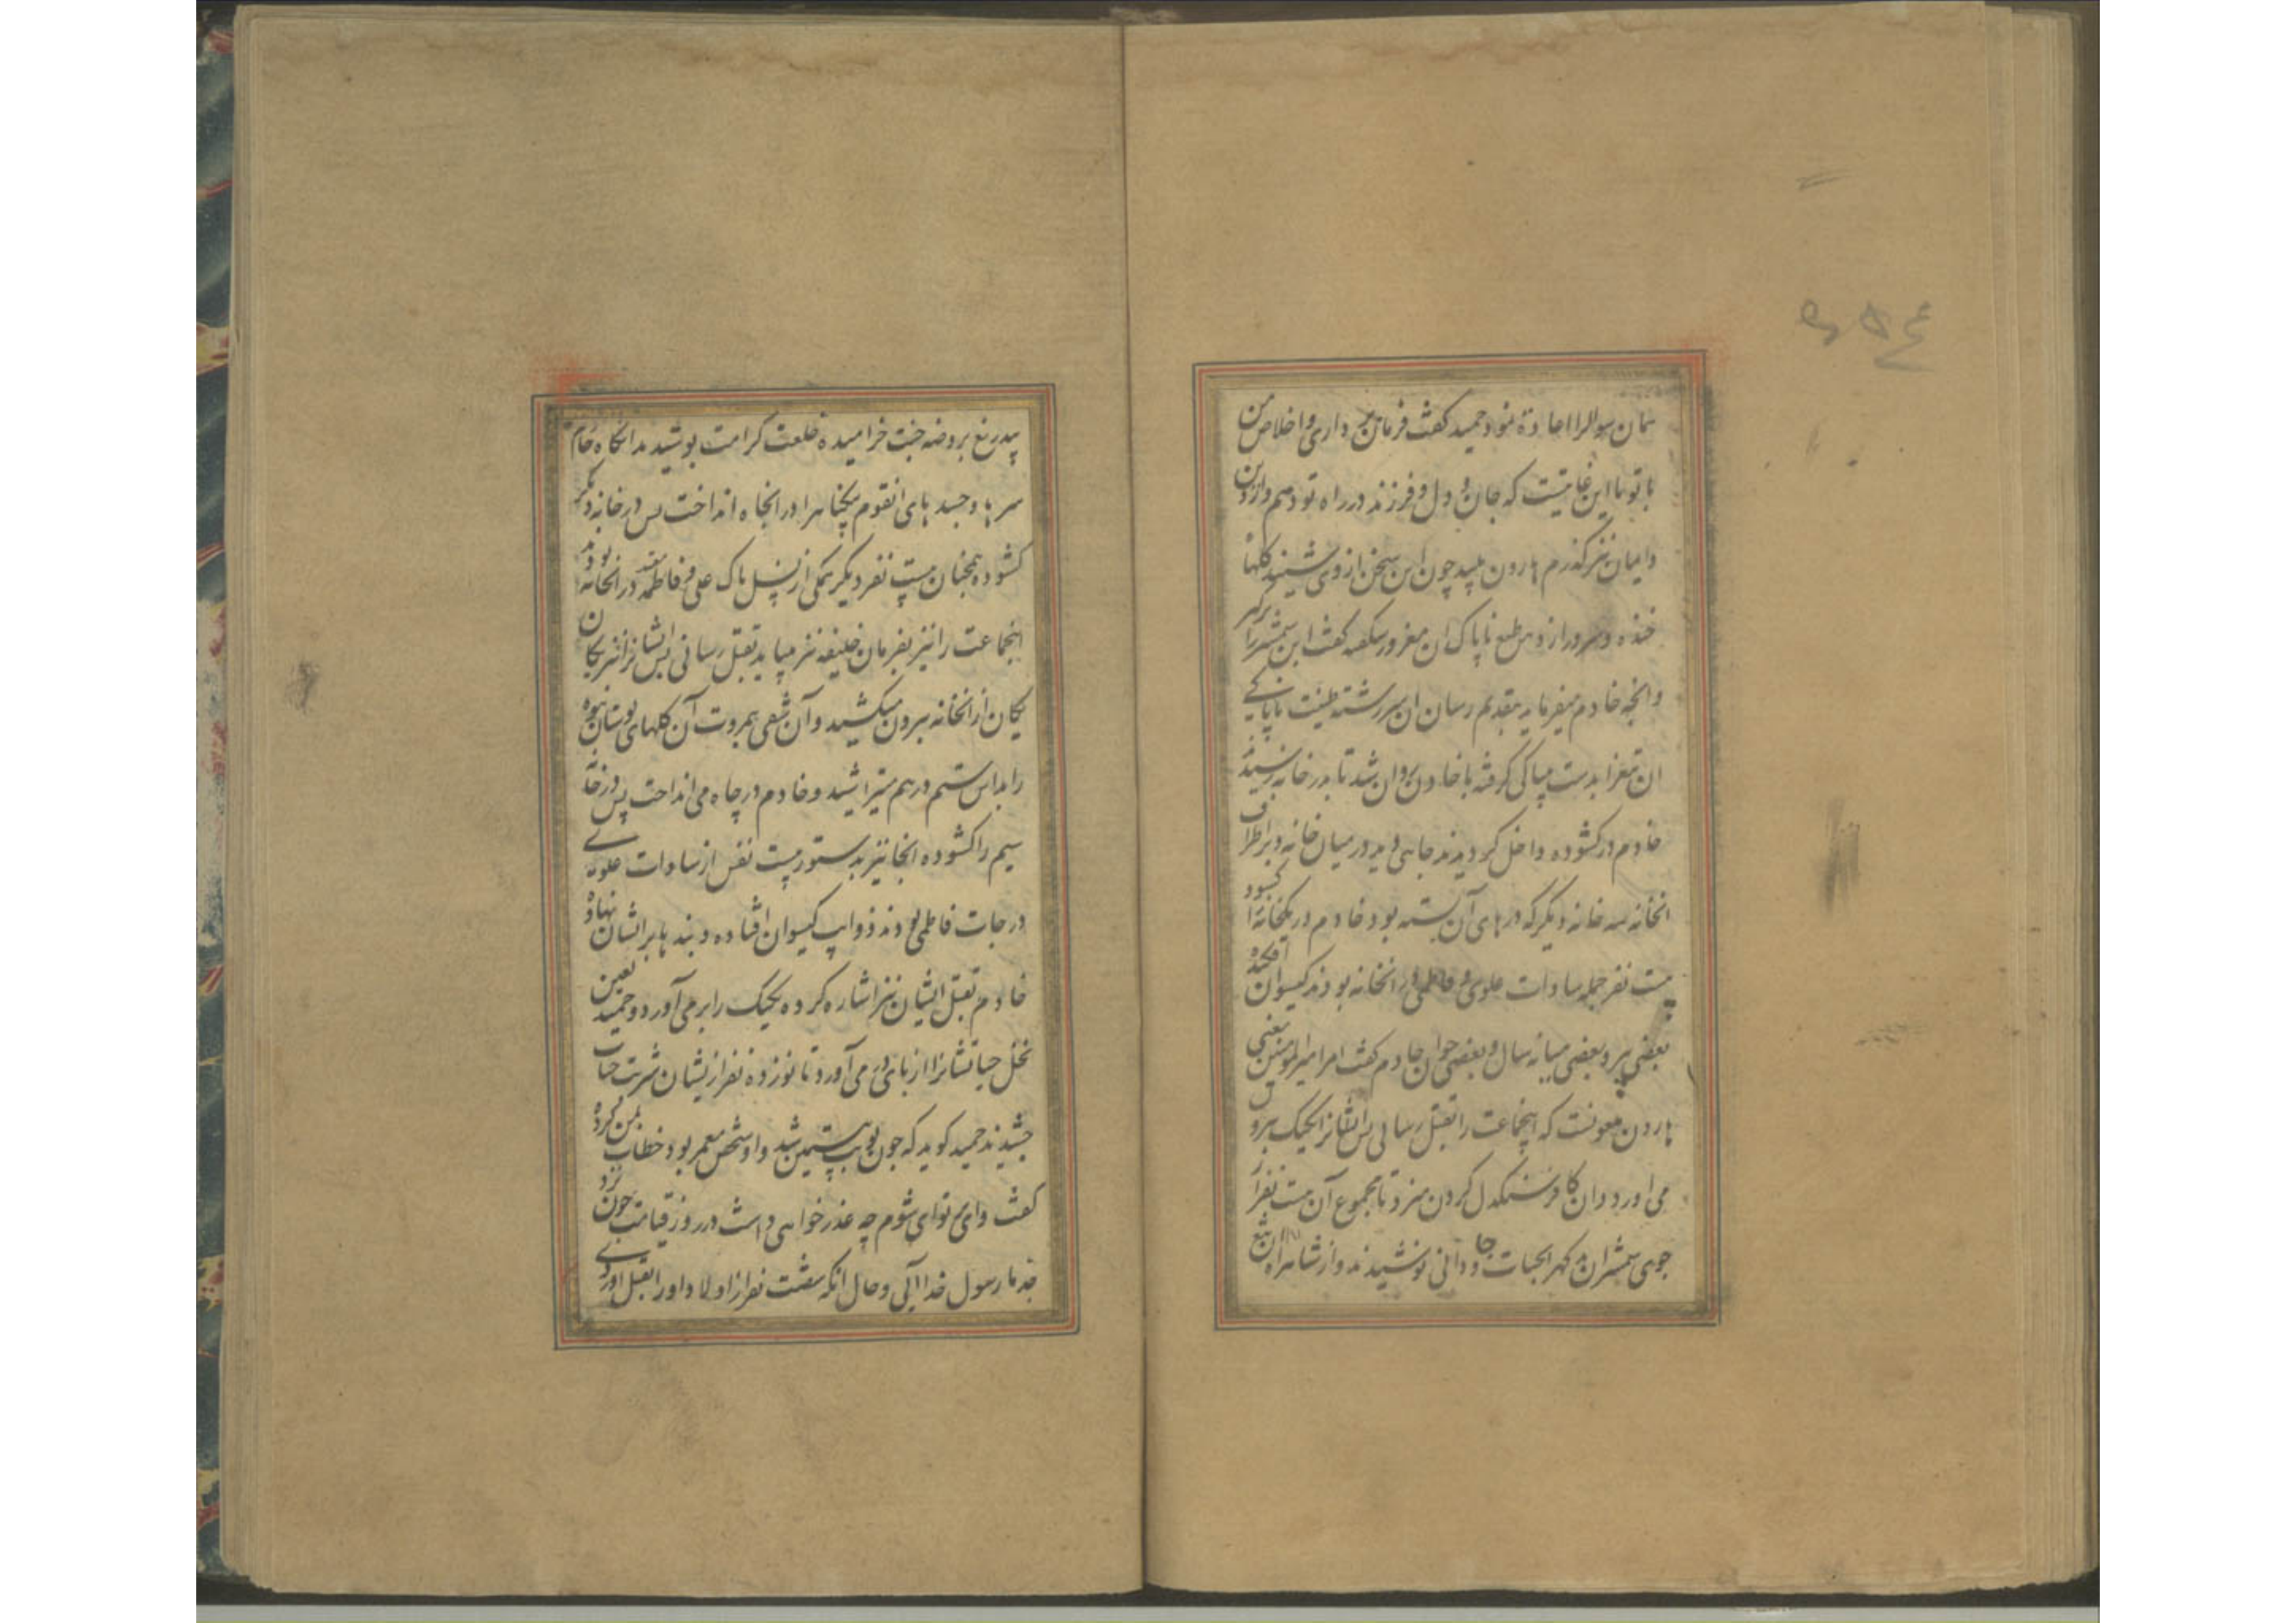 همان سوالرا اعادة نمود حمید کفت فرمان برداری و اخلاص من
با تو با این غایتست که جان و دل و فرزند در راه تو دهم و از دین
و ایمان نیز کذرم هارون پلید چون این سخن از وی شنید کلهای
خنده و سرور از وی طبع ناپاک ان مغرور شکفه کفت این شمشیر را برکیر
و انچه خادم میفرماید بتقدیم رسان ان سررشته طینت ناپاکی
ان تیغ را بدست بیباکی کرفته با خادم روان شد تا بدر خانه رسیدند
خادم در کشوده داخل کردیدند چاهی دید در میان خانه و بر اطراف
انخانه سه خانه دیکر که درهای آن بسته بود خادم در یکخانه را کشود
بیست نفر جمله سادات علوی و فاطمی در انخانه بودند کیسوان افکنده
بعضی پیر و بعضی میانه سال و بعضی جوان خادم کفت امر امیرالمومنین یعنی
هارون ملعونست که اینجماعت را بقتل رسانی پس ایشانرا یکیک بیرون
می اورد و ان کافر سنکدل کردن میزد تا مجموع آن بیست نفر از
جوی شمشیر ان بد کهر ابحیات جاودانی نوشیدند و از شاهراه ان تیغ
بیدریغ بروضه جنت خرامیده خلعت کرامت پوشیدند انکاه خادم
سرها و جسدهای انقوم بیکناهرا در انچاه انداخت پس در خانه دیکر
کشوده همچنان بیست نفر دیکر همکی از نسل پاک علی و فاطمه در انخانه بودند
اینجماعت را نیز بفرمان خلیفه نیز میباید بقتل رسانی پس ایشانرا نیز یکان
یکان از انخانه بیرون میکشید و آن شقی بیمروت آن کلهای بوستان نبوه
را بداس ستم در هم میتراشید و خادم در چاه می انداخت پس در خانه
سیم را کشوده انجا نیز بدستور بیست نفس از سادات علوی
درجات فاطمی بودند ذوایب کیسوان افتاده و بندها بر ایشان نهاده
خادم بقتل ایشان نیز اشاره کرده یکیک را بر می آورد و حمید لعین
نخل حیاتشانرا از پای در می آورد تا نوزده نفر ازیشان شربت حیات
چشیدند حمید کوید که چون نوبت بیستمین شد و او شخص معمر بود خطاب بمن کرده
کفت وای بر تو ای شوم چه عذر خواهی داشت در روز قیامت چون نزد
جد ما رسول خدا آیی و حال انکه شصت نفر از اولاد او را بقتل اوردی